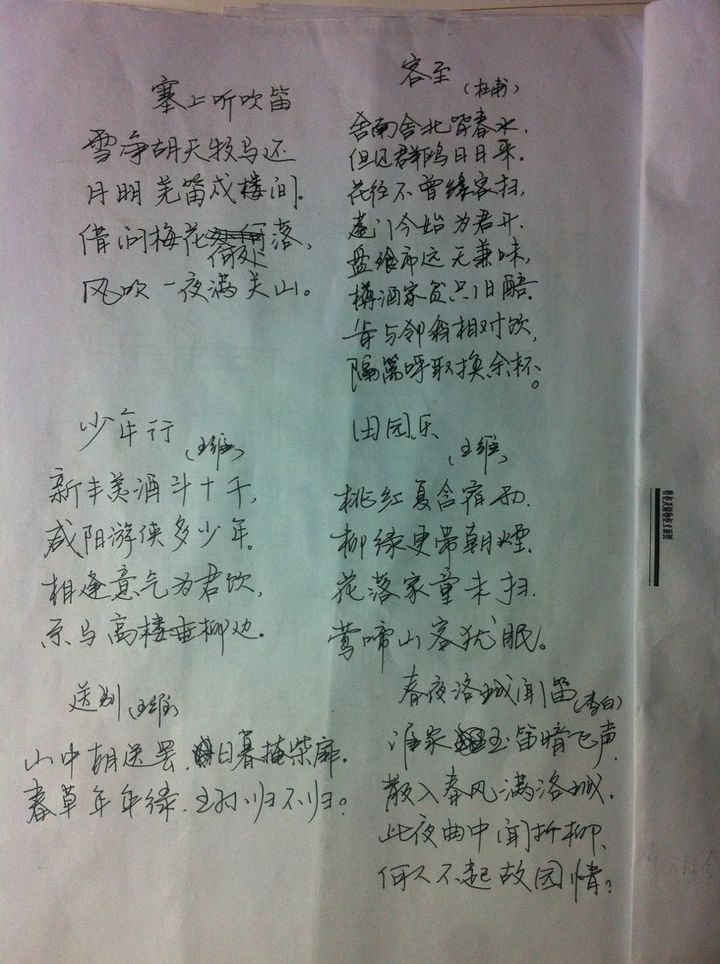 塞上听吹笛
雪净胡天牧马还
月明羌笛戍楼间.
借问梅花何处落,
风吹一夜满关山。
客至
(杜甫)
舍南舍北皆春水,
但见群鸥日日来.
花径不曾缘客扫,
蓬门今始为君开.
盘飧市远无兼味,
樽酒家贫只旧醅.
肯与邻翁相对饮,
隔篱呼取换余杯。
少年行
(王维)
新丰美酒斗十千,
咸阳游侠多少年.
相逢意气为君饮,
系马高楼垂柳边.
田园乐
(王维)
桃红复含宿雨.
柳绿更带朝烟.
花落家童未扫.
莺啼山客犹眠。
送别(王维)
山中相送罢.日暮掩柴扉.
春草年年绿.王孙归不归?
春夜洛城闻笛
(李白)
谁家玉笛暗飞声.
散入春风满洛城.
此夜曲中闻折柳.
何人不起故园情?